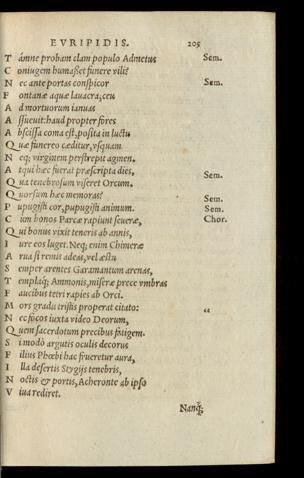 EVRIPIDIS. 205
T ámne probam clam populo Admetus Sem.
C oniugem humaßet funere vili?
N ec ante portas conspicor Sem.
F ontanæ aquæ lauacra, ceu
A d mortuorum ianuas
A ssueuit: haud propter fores
A bscissa coma est, posita in luctu
Q uæ funereo cæditur, vsquam
N eq; virginem perstrepit agmen.
A tqui hæc fuerat præscripta dies, Sem.
Q ua tenebrosum viseret Orcum.
Q uorsum hæc memoras? Sem.
P upugisti cor, pupugisti animum. Sem.
C ùm bonos Parcæ rapiunt seueræ, Chor.
Q ui bonus vixit teneris ab annis,
I ure eos luget. Neq; enim Chimeræ
A rua si remis adeas, vel æstu
S emper arentes Garamantum arenas,
T emplaq; Ammonis, miseræ prece vmbras
F aucibus tetri rapies ab Orci.
M ors gradu tristis properat citato: “
N ec focos iuxta video Deorum,
Q uem sacerdotum precibus fatigem.
S i modò argutis oculis decorus
F ilius Phœbi hac frueretur aura,
I lla desertis Stygijs tenebris,
N octis & portis, Acheronte ab ipso
V iua rediret.
Nanq;